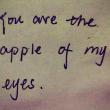 You are the
apple of my
eyes.